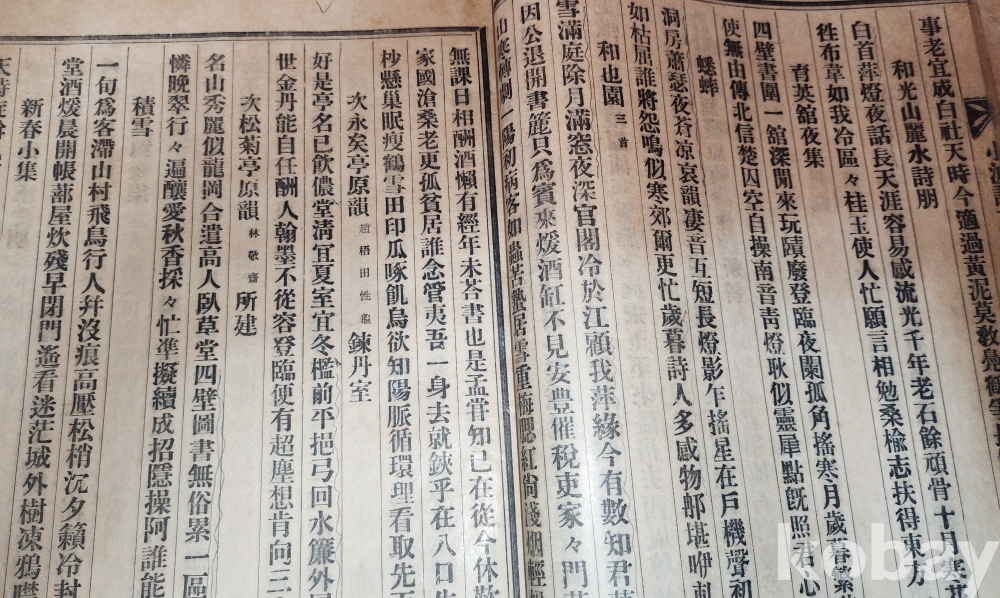 事老宜成白社天時今適過黃泥莫教
和光山麗水詩朋
白首萍燈夜話長天涯容易感流光千年老石餘頑骨十月寒
徃布韋如我冷區々桂玉使人忙願言相勉桑楡志扶得東方
育英館夜集
四壁書圍一館深閒來玩蹟廢登臨夜闌孤角搖寒月歲暮繁
使無由傳北信楚囚空自操南音靑燈耿似靈犀點旣照君心
蟋蟀
洞房蕭瑟夜蒼凉哀韻凄音互短長燈影乍搖星在戶機聲初
如枯屈誰將怨鳴似寒郊爾更忙歲暮詩人多感物郍堪咿
和也園 三首
雪滿庭除月滿窓夜深官閣冷於江顧我萍緣今有數知君
因公退開書簏只爲賓來煖酒缸不見安豊催稅吏家々門
山 一陽初 病客如蟲苦蟄居雪重梅腮紅尙淺烟輕
無課日相酬酒懶有經年未荅書也是孟甞知己在從今休
家國滄桑老更孤貧居誰念管夷吾一身去就鋏乎在八口
杪懸巢眠瘦鶴雪田印瓜啄飢烏欲知陽脈循環理看取先
次永矣亭原韻 趙梧田性 鍊丹室
好是亭名已飮儂堂淸宜夏室宜冬檻前平挹弓回水簾外
世金丹能自任酬人翰墨不從容登臨便有超塵想肯問三
次松菊亭原韻 林敬齋 所建
名山秀麗似龍岡合遺高人臥草堂四壁圖書無俗累一區
憐晩翠行々遍釀愛秋香採々忙準擬續成招隱操阿誰能
積雪
一旬爲客滯山村飛鳥行人幷沒痕高壓松梢沉夕籟冷封
堂酒煖晨開帳蔀屋炊殘早閉門遙看迷茫城外樹凍鴉
新春小集
天時
kobay